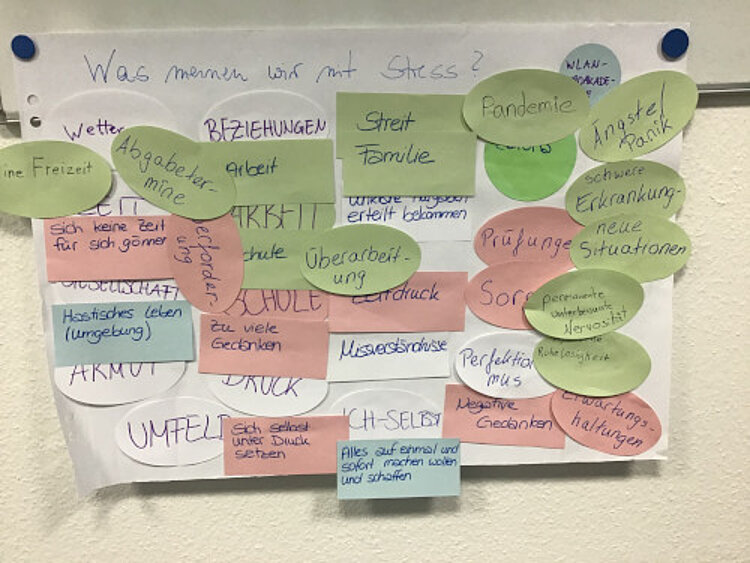 Was meinen wir mit Stress?
WLAN-
Wetter
BEZIEHUNGEN
Streit
Familie
Pandemie
Ängste/
Panik
ine Freizeit
Abgabeter-
mine
arbeit
schwere
Erkrankung-
erteilt bekommen
ARBEIT
Sich keine Zeit
für sich gönnen
erforder-
ung
chule
Überarbeit-
ung
Prüfunge
neue
Situationen
GESELLSCHAFT
SCHULE
Zeitdruck
Sor
permanente
unterbewusste
Nervosität
Ruhelosigkeit
Hastisches Leben
(umgebung)
Zu viele
Gedanken
Missverständnisse
Perfektio
mus
ARMUT
DRUCK
UMFELD
Sich selbst
unter Druck
setzen
ICH-SELBST
Negative
Gedanken
Erwartungs-
haltungen
Alles auf einmal und
sofort machen wollen
und schaffen